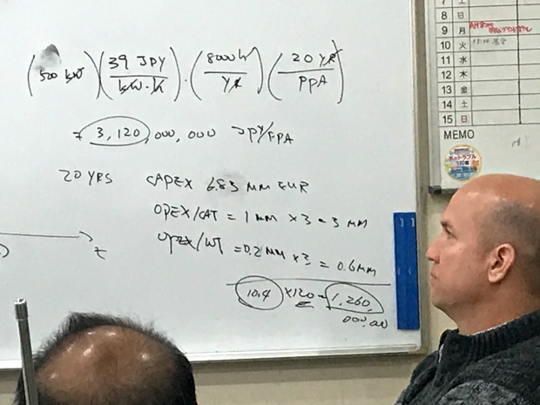 (500 kW) (39 JPY / kW·h) · (8000 h / YR) (20 YR / PPA)
= 3,120,000,000 JPY/PPA
20 YRS CAPEX 6.83 MM EUR
OPEX/CAT = 1 MM × 3 = 3 MM
OPEX/WT = 0.2 MM × 3 = 0.6 MM
10.4 × 120 = 1,260,
000,000
7 土
8 日
9 月
10 火
11 水
12 木
13 金
14 土
15 日
MEMO